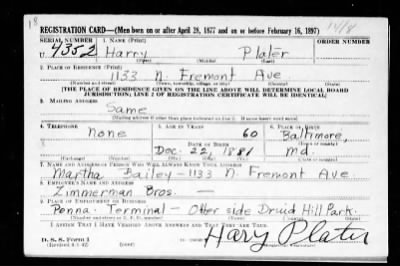 18
REGISTRATION CARD—(Men born on or after April 28, 1877 and on or before February 16, 1897)
SERIAL NUMBER 1. NAME (Print) ORDER NUMBER
U 4352 Harry Plater
(First) (Middle) (Last)
2. PLACE OF RESIDENCE (Print)
1133 N. Fremont Ave
(Number and street) (Town, township, village, or city) (County) (State)
[THE PLACE OF RESIDENCE GIVEN ON THE LINE ABOVE WILL DETERMINE LOCAL BOARD
JURISDICTION; LINE 2 OF REGISTRATION CERTIFICATE WILL BE IDENTICAL]
3. MAILING ADDRESS
Same
[Mailing address if other than place indicated on line 2. If same insert word same]
4. TELEPHONE 5. AGE IN YEARS 6. PLACE OF BIRTH
None 60 Baltimore,
DATE OF BIRTH (Town or county)
Dec. 22, 1881 Md.
(Exchange) (Number) (Mo.) (Day) (Yr.) (State or country)
7. NAME AND ADDRESS OF PERSON WHO WILL ALWAYS KNOW YOUR ADDRESS
Martha Bailey - 1133 N. Fremont Ave.
8. EMPLOYER'S NAME AND ADDRESS
Zimmerman Bros. —
9. PLACE OF EMPLOYMENT OR BUSINESS
Penna. Terminal - Other side Druid Hill Park.
(Number and street or R. F. D. number) (Town) (County) (State)
I AFFIRM THAT I HAVE VERIFIED ABOVE ANSWERS AND THAT THEY ARE TRUE.
D. S. S. Form 1
(Revised 4-1-42) Hary Plater